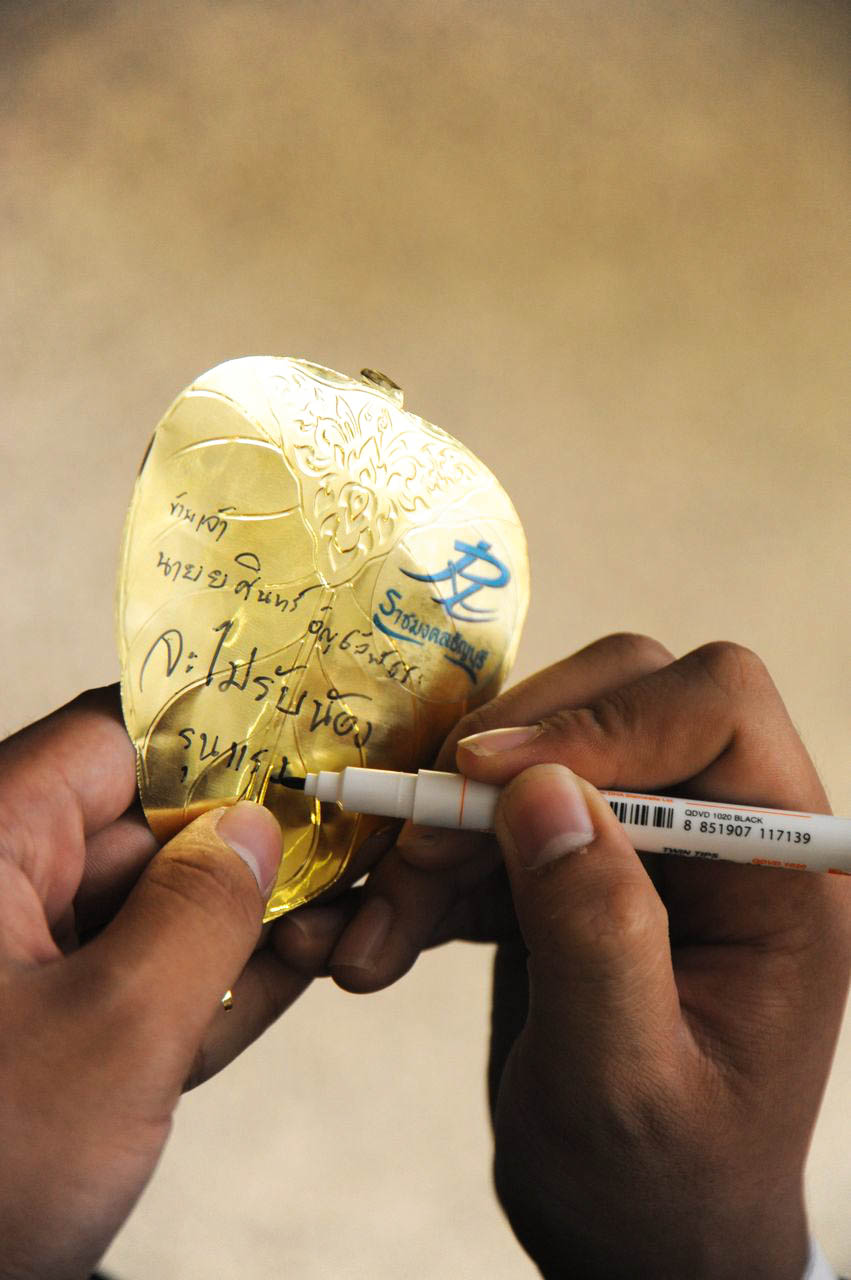 ข้าพเจ้า
นายยศินทร์
จะไม่รับน้อง
รุนแรง
ราชมงคลธัญบุรี
QDVD 1020 BLACK
8 851907 117139
TWIN TIPS
QDVD 1020